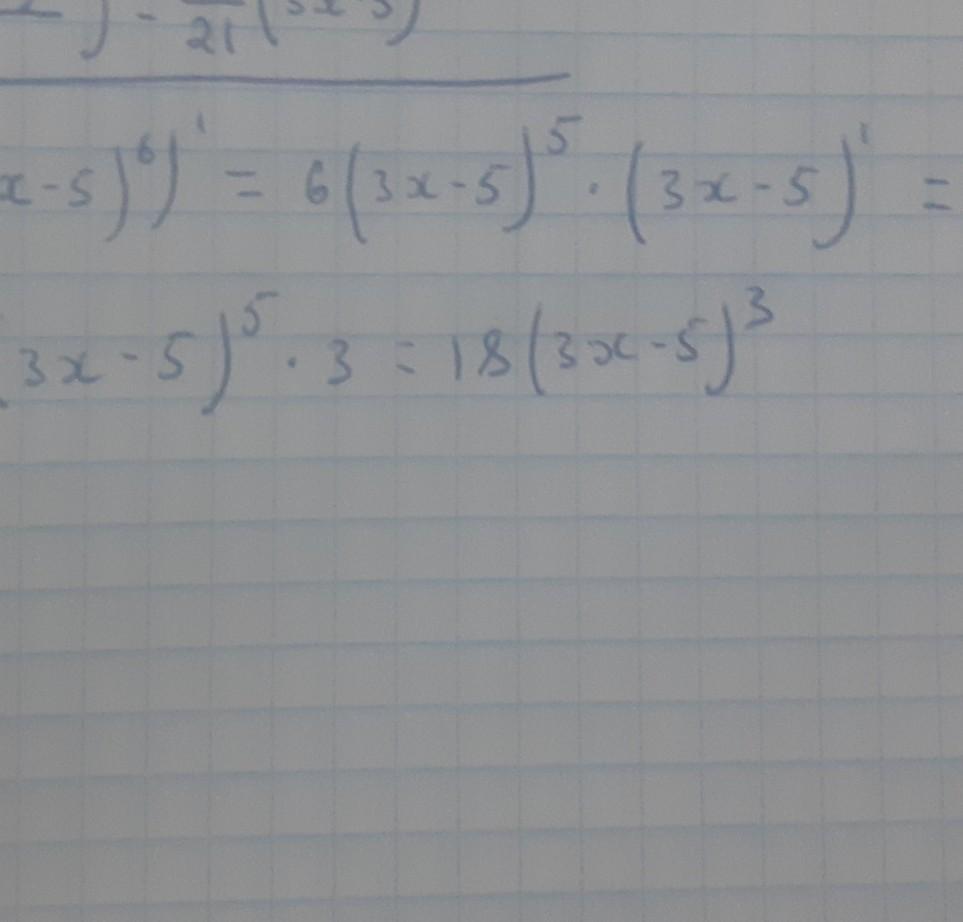 ) - 21 (
x - 5)^6)' = 6(3x - 5)^5 · (3x - 5)' =
3x - 5)^5 · 3 = 18(3x - 5)^3